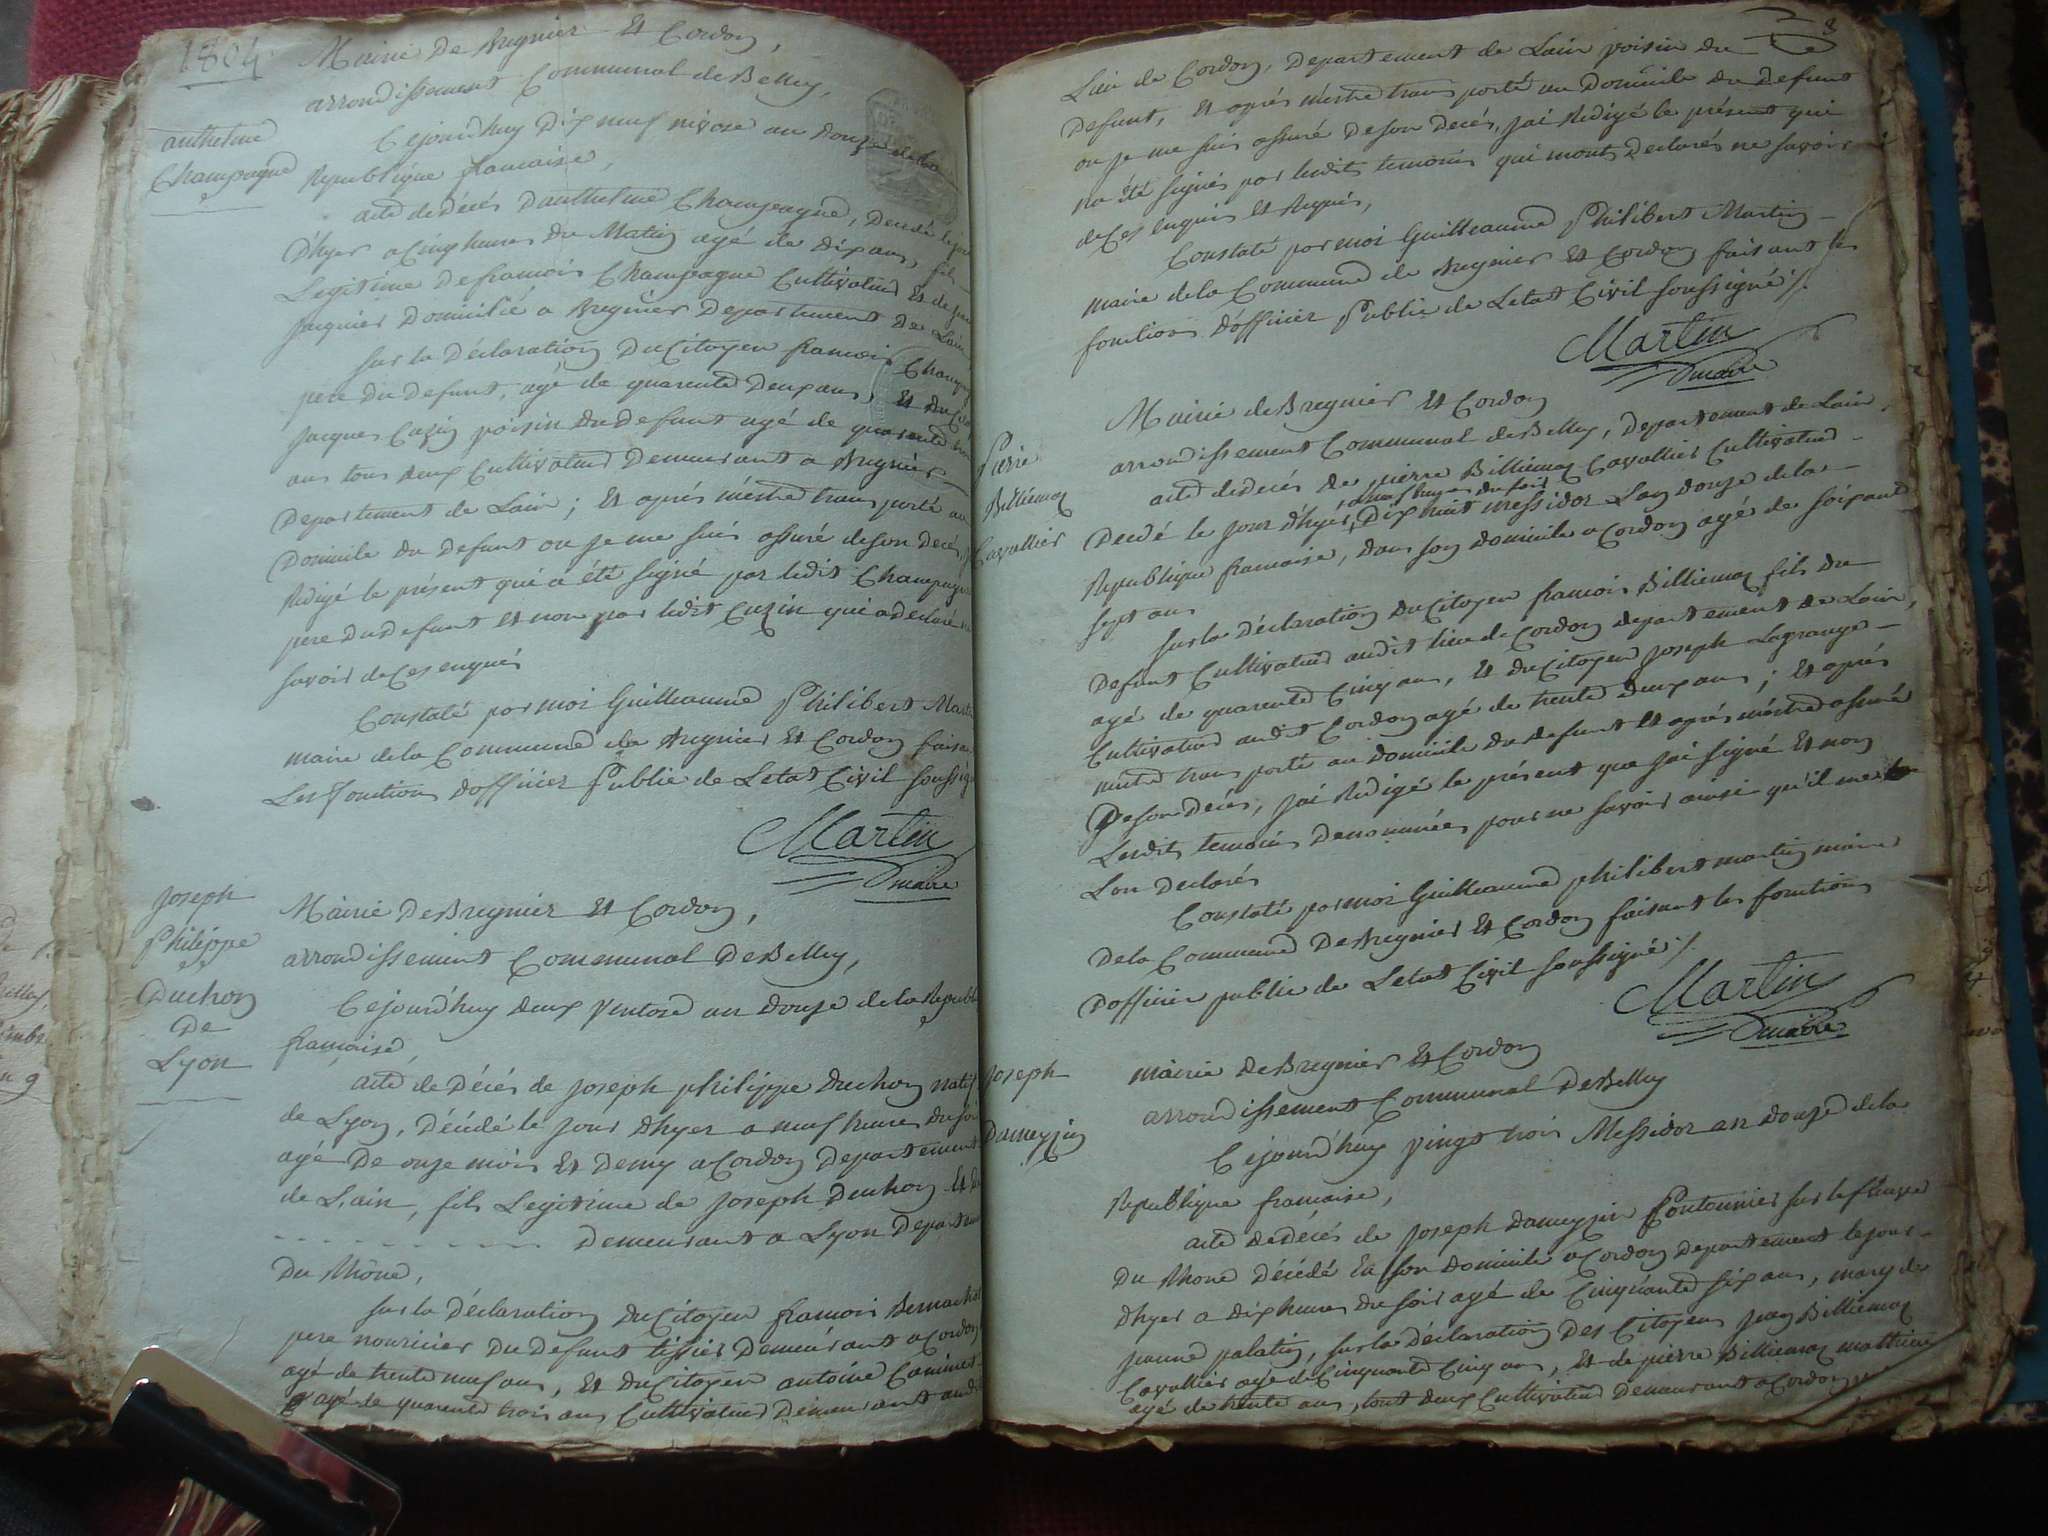 1804
Mairie De Bregnier Et Cordon,
arrondissement Communal de Belley,
Cejourd'huy Dix neuf nivose an douze de la
Republique francaise,
anthelme
Champagne
acte de décés D'anthelme Champeagne, Decedé le jour
D'hyer a Cinq heures du Matin agé de dix ans, fils
Legitime de francois Champeagne Cultivateur Et de
Jaquier Domicilié a Bregnier Departement De Lain,
Sur la Déclaration Du Citoyen francois Champ
pere Du Defunt, agé de quarente Deux ans, Et Du
Jacques Cuzin voisin Du Defunt agé de quarente
ans tous deux Cultivateurs Demeurant a Bregnier
Departement de Lain ; Et aprés m'estre transporté au
Domicile du Defunt ou je me suis assuré de son Decés,
Redigé le présent qui a été signé par ledit Champagne
pere Du Defunt Et non par ledit Cuzin qui a declaré ne
savoir de Ces enquis
Constaté par moi Guilleaume Philibert Martin
maire de la Commune de Bregnier Et Cordon faisant
Les fonctions d'officier Public de Letat Civil soussigné
Martin
maire
Joseph
Philippe
Duchon
De
Lyon
Mairie De Bregnier Et Cordon,
arrondissement Communal De Belley,
Cejourd'huy deux Ventose an douze de la Republi
francaise,
acte de Décés de Joseph philippe Duchon natif
de Lyon, Décédé le jour d'hyer a neuf heures du soir
agé De onze mois Et Demy a Cordon Departement
de Lain, fils Legitime de Joseph Duchon Et de
- - - - - - - - - - Demeurant a Lyon Departement
Du Rhône,
Sur la Déclaration Du Citoyen francois Bernachot
pere nouricier du Defunt tissier Demeurant a Cordon
agé de trente neuf ans, Et du Citoyen antoine Caminet
agé de quarente trois ans Cultivateur Demeurant audit
8
Lieu de Cordon, Departement de Lain voisin du
Defunt, Et aprés m'estre transporté au Domicile du Defunt
ou je me suis assuré de son Decés, jai Redigé le présent qui
na été signés par lesdits temoins qui mont Declarés ne savoir
de Ces enquis Et Requis,
Constaté par moi Guilleaume Philibert Martin
maire de la Commune de Bregnier Et Cordon faisant les
fonctions d'officier Public de Letat Civil soussigné ./.
Martin
maire
Mairie de Bregnier Et Cordon
arrondissement Communal de Belley, Departement de Lain,
Pierre
Billiemaz
Cavallier
acte de decés de pierre Billiemaz Cavallier Cultivateur
a neuf heures du soir
Decedé le jour d'hyer, Dix huit messidor Lan douze de la
Republique francaise, dans son domicile a Cordon agé de soixante
sept ans
Sur la Déclaration du Citoyen francois Billiemaz fils du
Defunt Cultivateur audit lieu de Cordon departement de Lain,
agé de quarente Cinq ans, Et du Citoyen Joseph Lagrange
Cultivateur audit Cordon agé de trente deux ans ; Et aprés
mestre transporté au domicile du defunt Et aprés m'estre assuré
De son Decés, jai Redigé le présent que jai signé Et non
Lesdits temoins Denommées pour ne savoir ainsi qu'il me
Lon Declarés
Constaté par moi Guilleaume philibert martin maire
De la Commune De Bregnier Et Cordon faisant les fonctions
D'officier public de Letat Civil soussigné ./.
Martin
maire
Joseph
Dameyzin
mairie de Bregnier Et Cordon
arrondissement Communal De Belley
Cejourd'huy vingt trois Messidor an douze de la
Republique francaise,
acte de décés de Joseph dameyzin Pontonnier sur le fleuve
Du Rhone Décédé En son domicile a Cordon departement le jour
d'hyer a dix heures du soir agé de Cinquante six ans, mary de
jeanne palatin, sur la déclaration Des Citoyens jean Billiemaz
Cavallier agé de Cinquante Cinq ans, Et de pierre Billiemaz mathieu
agé de trente ans, tout deux Cultivateurs demeurant a Cordon